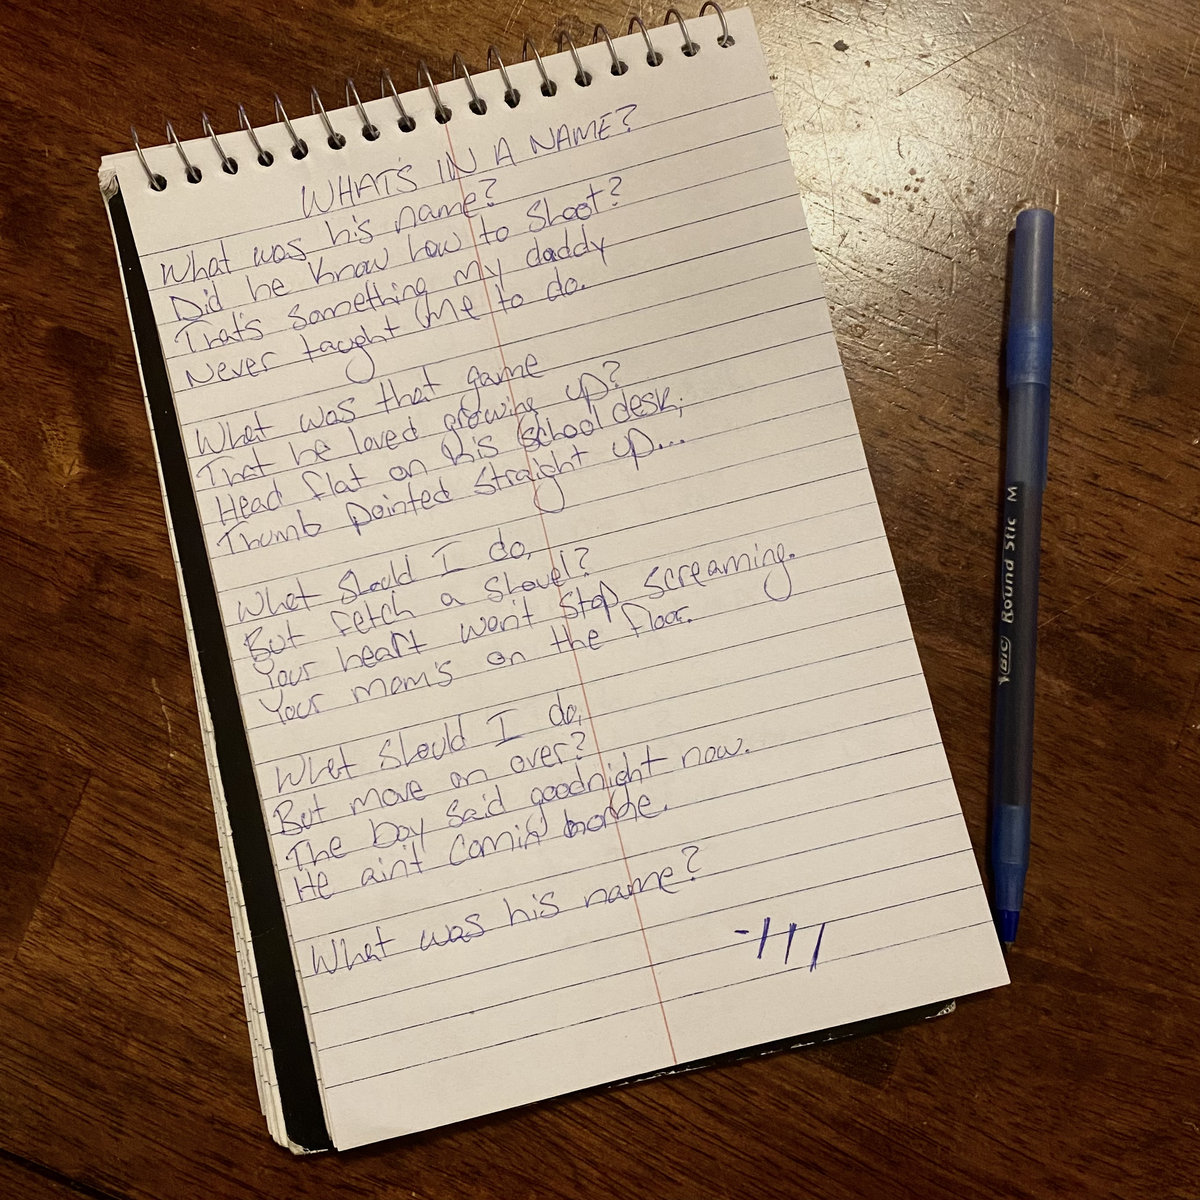 WHAT'S IN A NAME?
What was his name?
Did he know how to shoot?
That's something my daddy
Never taught me to do.
What was that game
That he loved growing up?
Head flat on his school desk,
Thumb pointed straight up...
What should I do,
But fetch a shovel?
Your heart won't stop screaming.
Your mom's on the floor.
What should I do,
But move on over?
The boy said goodnight now.
He ain't comin' home.
What was his name?
-///
BIC Round Stic M